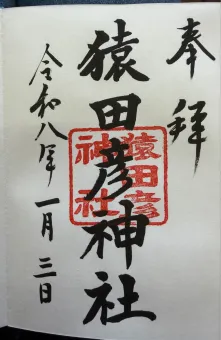 奉拝
猿田彦神社
猿田彦
神社
令和八年
一月三日